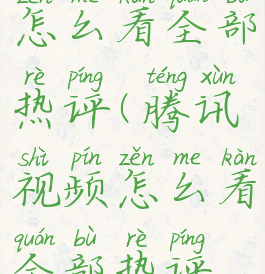 zěn me kàn quán bù
怎么看全部
rè píng téng xùn
热评(腾讯
shì pín zěn me kàn
视频怎么看
quán bù rè píng
全部热评